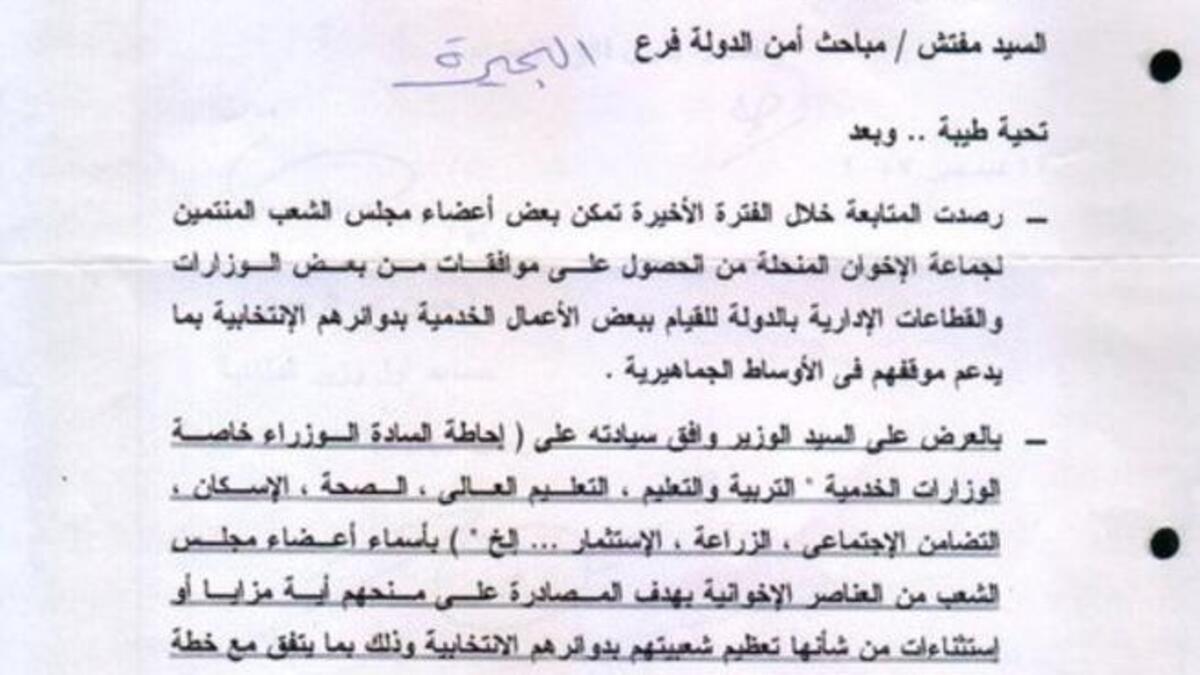 السيد مفتش / مباحث أمن الدولة فرع البحيرة
تحية طيبة .. وبعد
ـ رصدت المتابعة خلال الفترة الأخيرة تمكن بعض أعضاء مجلس الشعب المنتمين
لجماعة الإخوان المنحلة من الحصول على موافقات من بعض الوزارات
والقطاعات الإدارية بالدولة للقيام ببعض الأعمال الخدمية بدوائرهم الإنتخابية بما
يدعم موقفهم فى الأوساط الجماهيرية .
ـ بالعرض على السيد الوزير وافق سيادته على ( إحاطة السادة الوزراء خاصة
الوزارات الخدمية " التربية والتعليم ، التعليم العالى ، الصحة ، الإسكان ،
التضامن الإجتماعى ، الزراعة ، الإستثمار ... إلخ " ) بأسماء أعضاء مجلس
الشعب من العناصر الإخوانية بهدف المصادرة على منحهم أية مزايا أو
إستثناءات من شأنها تعظيم شعبيتهم بدوائرهم الانتخابية وذلك بما يتفق مع خطة